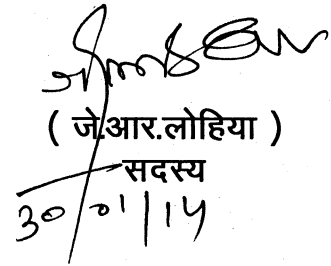 ( जे.आर.लोहिया )
सदस्य
30/01/14